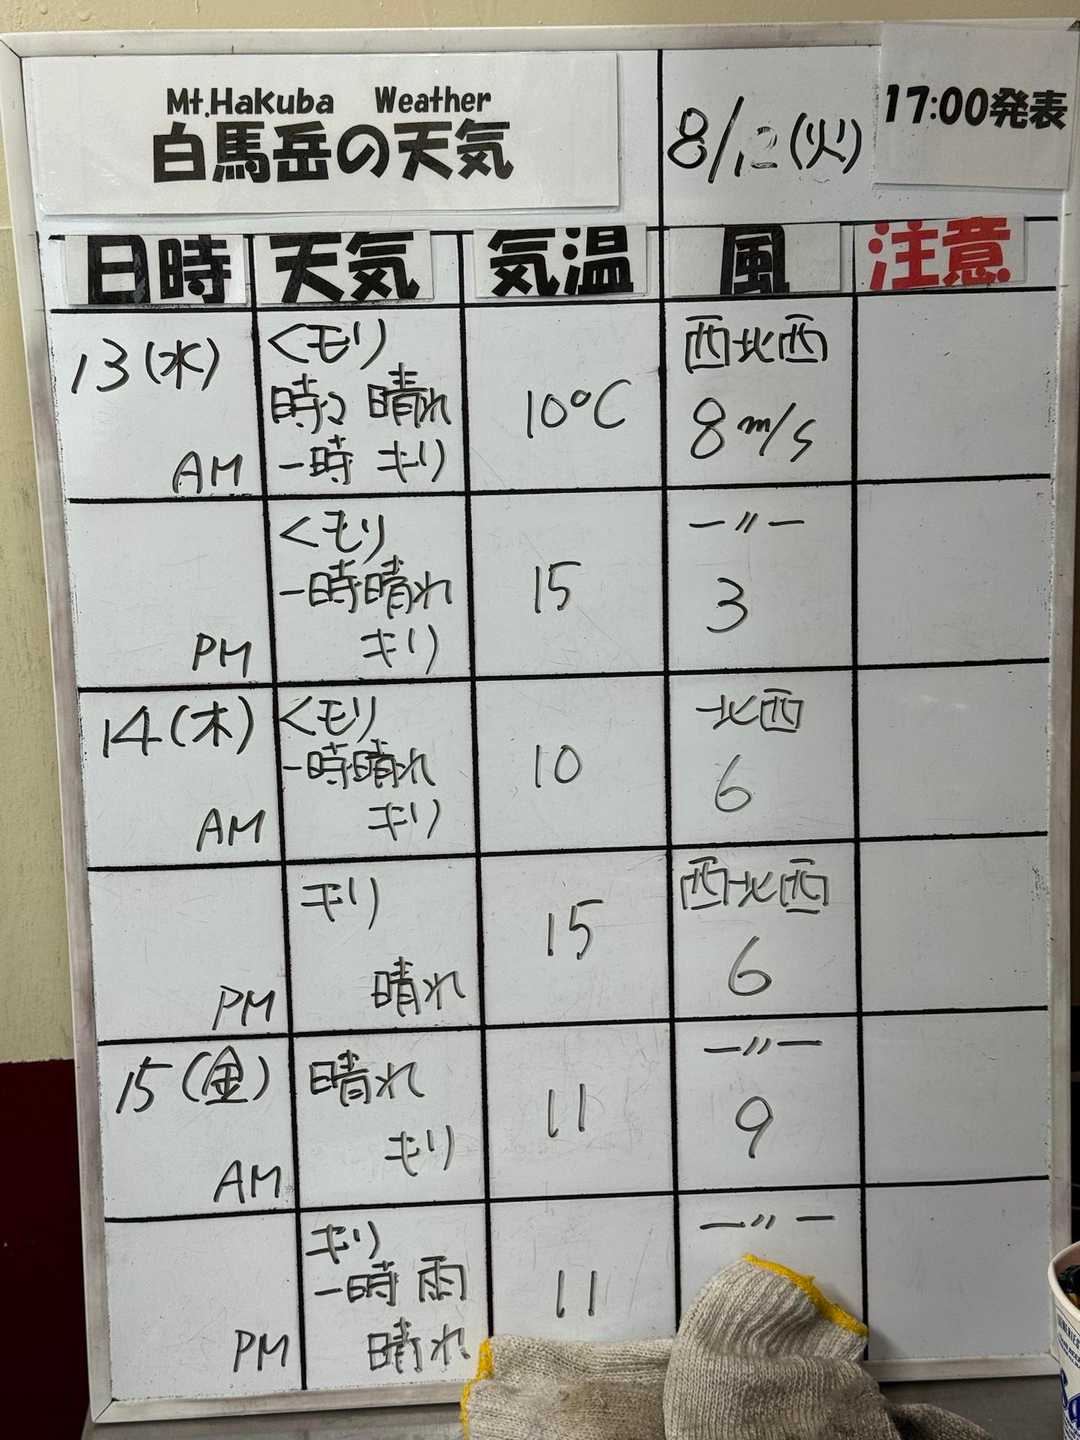 Mt.Hakuba Weather
白馬岳の天気
8/12(火)
17:00発表
日時 天気 気温 風 注意
13(水)
AM
くモリ
時々 晴れ
一時 キリ
10°C
西北西
8m/s
PM
くモリ
一時晴れ
キリ
15
―〃―
3
14(木)
AM
くモリ
一時晴れ
キリ
10
北西
6
PM
キリ
晴れ
15
西北西
6
15(金)
AM
晴れ
キリ
11
―〃―
9
PM
キリ
一時 雨
晴れ
11
―〃―